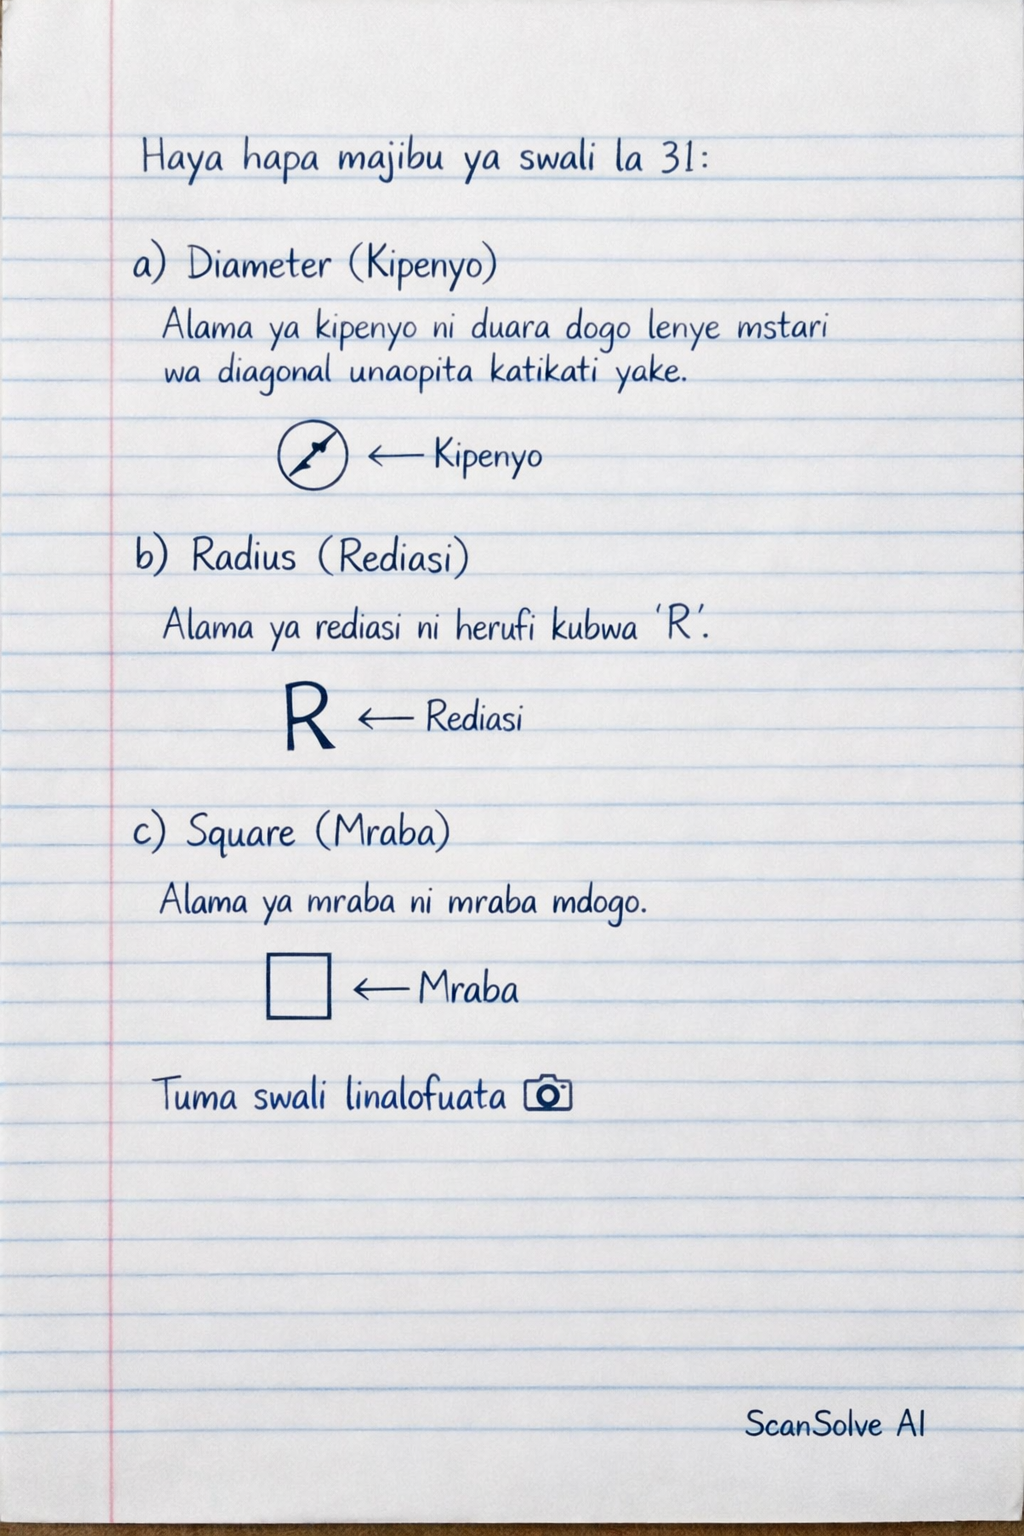 Haya hapa majibu ya swali la 31:
a) Diameter (Kipenyo)
Alama ya kipenyo ni duara dogo lenye mstari
wa diagonal unaopita katikati yake.
← Kipenyo
b) Radius (Rediasi)
Alama ya rediasi ni herufi kubwa 'R'.
R ← Rediasi
c) Square (Mraba)
Alama ya mraba ni mraba mdogo.
← Mraba
Tuma swali linalofuata
ScanSolve AI